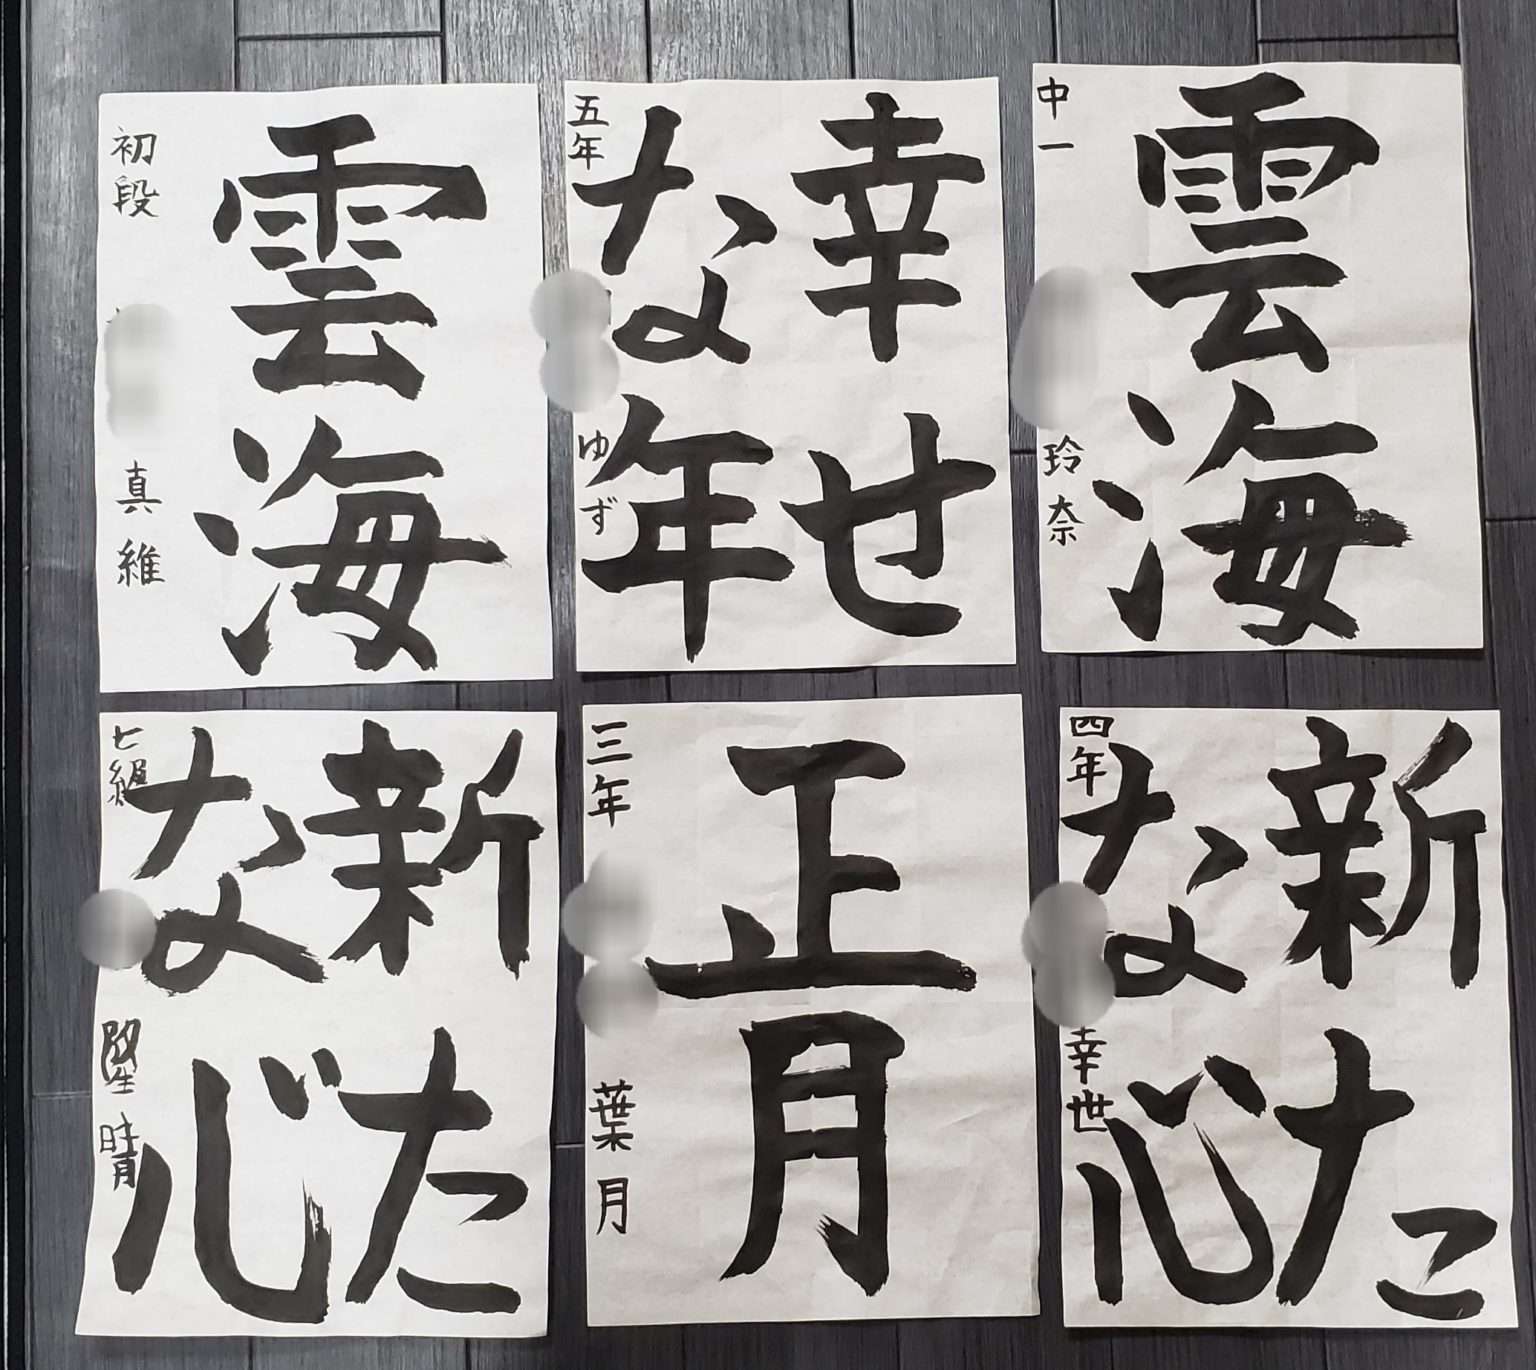 雲海
初段
真維
幸せ
な年
五年
ゆず
雲海
中一
玲奈
新た
な心
七級
晴
正月
三年
葉月
新た
な心
四年
幸世